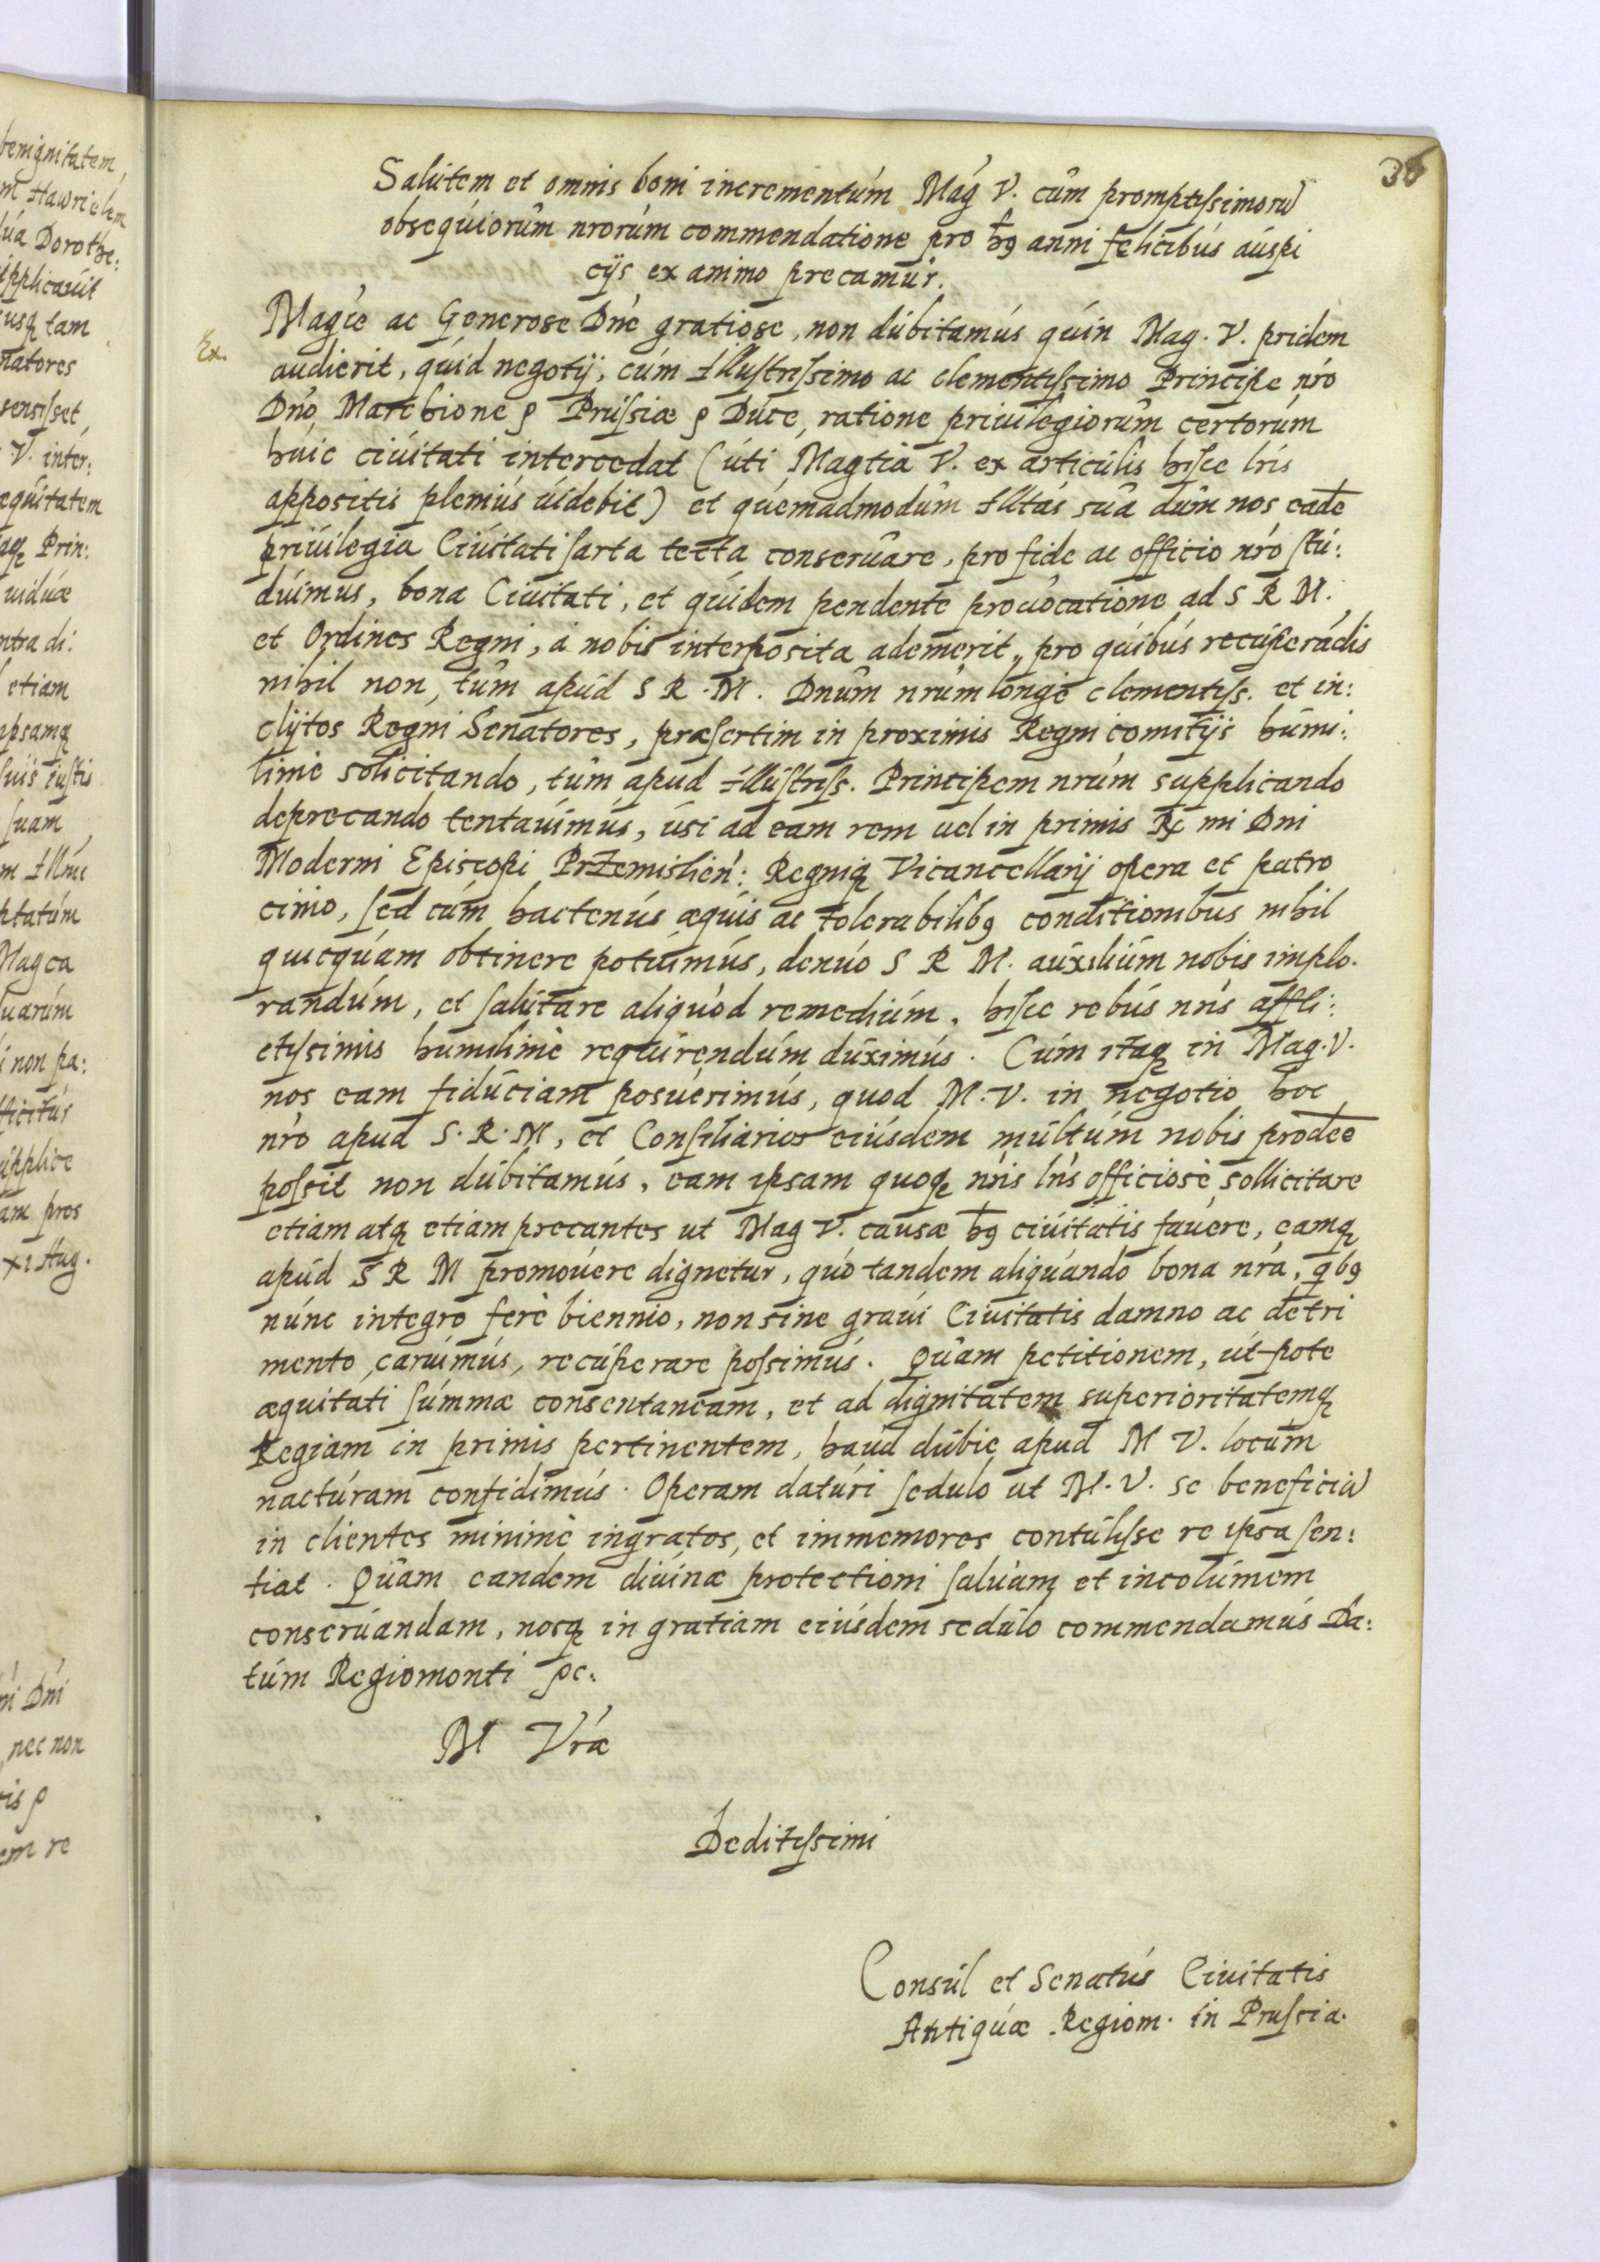 benignitatem,
m Hawrielem
sua Dorothe:
supplicauit
usq tam
natores
sensisset,
V. inter:
æquitatem
aq Prin:
uiduæ
ntra di:
etiam
ipsamq
suis iustis
suam,
m Illmi
ptatum
Magca
suarum
i non pa:
fficitus
supplice
am pros
xi Aug.
ni Dni
, nec non
ris ꝑ
em re
36
Salutem et omnis boni incrementum Mag V. cum promptissimoru
obsequiorum nrorum commendatione pro h9 anni felicibus auspi
cijs ex animo precamur.
Ex.
Magce ac Generose Dne gratiose, non dubitamus quin Mag. V. pridem
audierit, quid negotij, cum Illustrissimo ac clementissimo Principe nro
Dno Marchione ꝛ Prussiæ ꝛ Duce, ratione priuilegiorum certorum
huic ciuitati intercedat (uti Magtia V. ex articulis hisce lris
appositis plenius uidebit) et quemadmodum Illtas sua dum nos eade
priuilegia Ciuitati sarta tecta conseruare, pro fide ac officio nro stu:
duimus, bona Ciuitati, et quidem pendente prouocatione ad S R M.
et Ordines Regni, a nobis interposita ademerit, pro quibus recuperadis
nihil non, tum apud S R. M. Dnum nrum longe clementiss. et in:
clytos Regni Senatores, præsertim in proximis Regni comitijs humi:
lime solicitando, tum apud Illustriss. Principem nrum supplicando
deprecando tentauimus, usi ad eam rem uel in primis Rx mi Dni
Moderni Episcopi Przemislien: Regniq Vicancellarij opera et patro
cinio, sed cum hactenus æquis ac tolerabilib9 conditionibus nihil
quicquam obtinere potuimus, denuo S R M. auxilium nobis implo.
randum, et salutare aliquod remedium, hisce rebus nris affli:
ctissimis humilime requirendum duximus. Cum itaq in Mag. V.
nos eam fiduciam posuerimus, quod M. V. in negotio hoc
nro apud S. R. M, et Consiliarios eiusdem multum nobis prodee
possit non dubitamus, eam ipsam quoq nris lris officiose sollicitare
etiam atq etiam precantes ut Mag V. causæ h9 ciuitatis fauere, eamq
apud S R M promouere dignetur, quo tandem aliquando bona nra, qb9
nunc integro fere biennio, non sine graui Ciuitatis damno ac detri
mento, caruimus, recuperare possimus. Quam petitionem, ut pote
æquitati summæ consentaneam, et ad dignitatem superioritatemq
Regiam in primis pertinentem, haud dubie apud M V. locum
nacturam confidimus. Operam daturi sedulo ut M. V. se beneficiu
in clientes minime ingratos, et immemores contulisse re ipsa sen:
tiat. Quam eandem diuinæ protectioni saluam et incolumem
conseruandam, nosq in gratiam eiusdem sedulo commendamus Da:
tum Regiomonti ꝛc.
M Vræ
Deditissimi
Consul et Senatus Ciuitatis
Antiquæ Regiom. in Prussia.